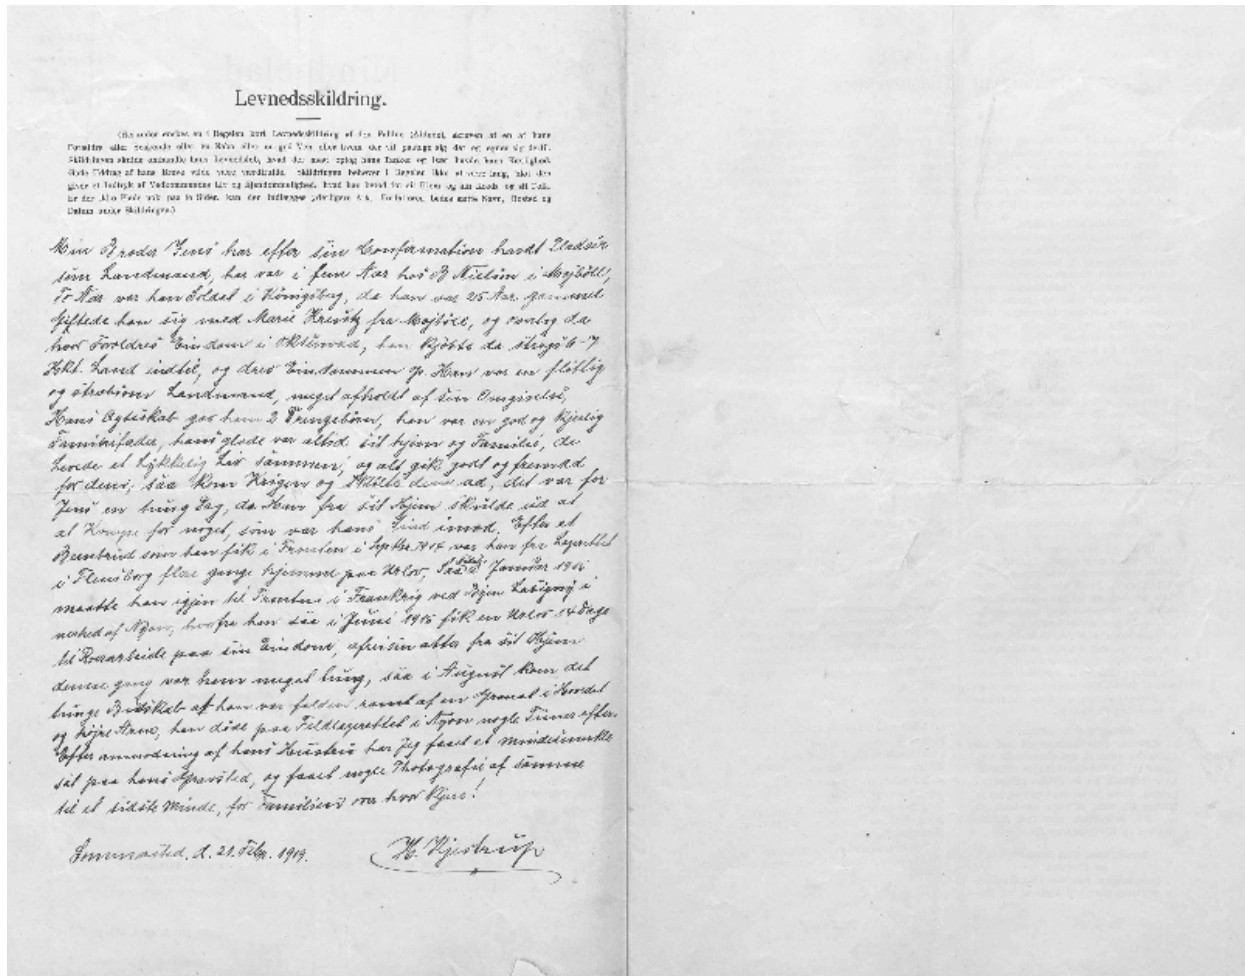 Levnedsskildring.
(Herunder ønskes en i Regelen kort Levnedsskildring af den Faldne (Afdøde), skreven af en af hans
Forældre eller Søskende eller en Nabo eller en god Ven eller hvem der vil paatage sig det og egner sig dertil.
Skildringen skulde omhandle hans Levnedsløb, hvad der mest optog hans Tanker og især havde hans Kærlighed.
Gode Uddrag af hans Breve vilde være værdifulde. Skildringen behøver i Regelen ikke at være lang, blot den
giver et Indtryk af Vedkommendes Liv og Ejendommelighed, hvad han betød for sit Hjem og sin Kreds og sit Folk.
Er der ikke Plads nok paa to Sider, kan der indlægges yderligere Ark. Forfatteren bedes sætte Navn, Bosted og
Datum under Skildringen.)
Min Broder Jens har efter sin Confirmation havt Pladser
som Landmand, har var i fem Aar hos B Nielsen i Mojbøll,
To Aar var han Soldat i Königsberg, da han var 25 Aar gammel
Giftede han sig med Marie fra Mojbøll, og overtog da
hvor Foreldres Eindom i Oksenvad, han kjøbte da strags 6-7
Hkt. Land indtil, og drev Eindommen op. Han var en flittig
og stræbsom Landmand, meget afholdt af sin Omgivelse,
Hans Ægteskab gav ham 2 Drengebørn, han var en god og kjerlig
Familiefader, hans glede var altid sit hjem og Familie, de
Levede et Lykkelig Liv sammen, og alt gik godt og fremad
for dem, saa kom Krigen og skilte dem ad, det var for
Jens en tung Dag, da Han fra sit Hjem skulde ud at
at Kempe for noget, som var hans Sind imod. Efter et
Beenbrud som han fik i Fronten i Septbr. 1914 var han fra Lazerettet
i Flensborg flere gange hjemme paa Urlov, Januar 1915
maatte han igjen til Fronten i Frankrig ved Byen Lasigny i
nerhed af Nyon, hvorfra han saa i Juni 1915 fik en Urlov 14 Dage
til Roearbeide paa sin Eindom, afreisen atter fra sit Hjem
denne gang var ham meget tung, saa i August kom det
tunge Budskab at han var falden ramt af en Granat i Hovdet
og højre Arm, han døde paa Feldlazerettet i Nyon nogle Timer efter.
Efter anmodning af hans Hustru har Jeg faaet et mindesmerke
sat paa hans Gravsted, og faaet nogle Photografie af samme
til et sidste Minde, for Familiens var hvor Kjer!
Sommersted, d. 21. Febr. 1919. H. Kjestrup